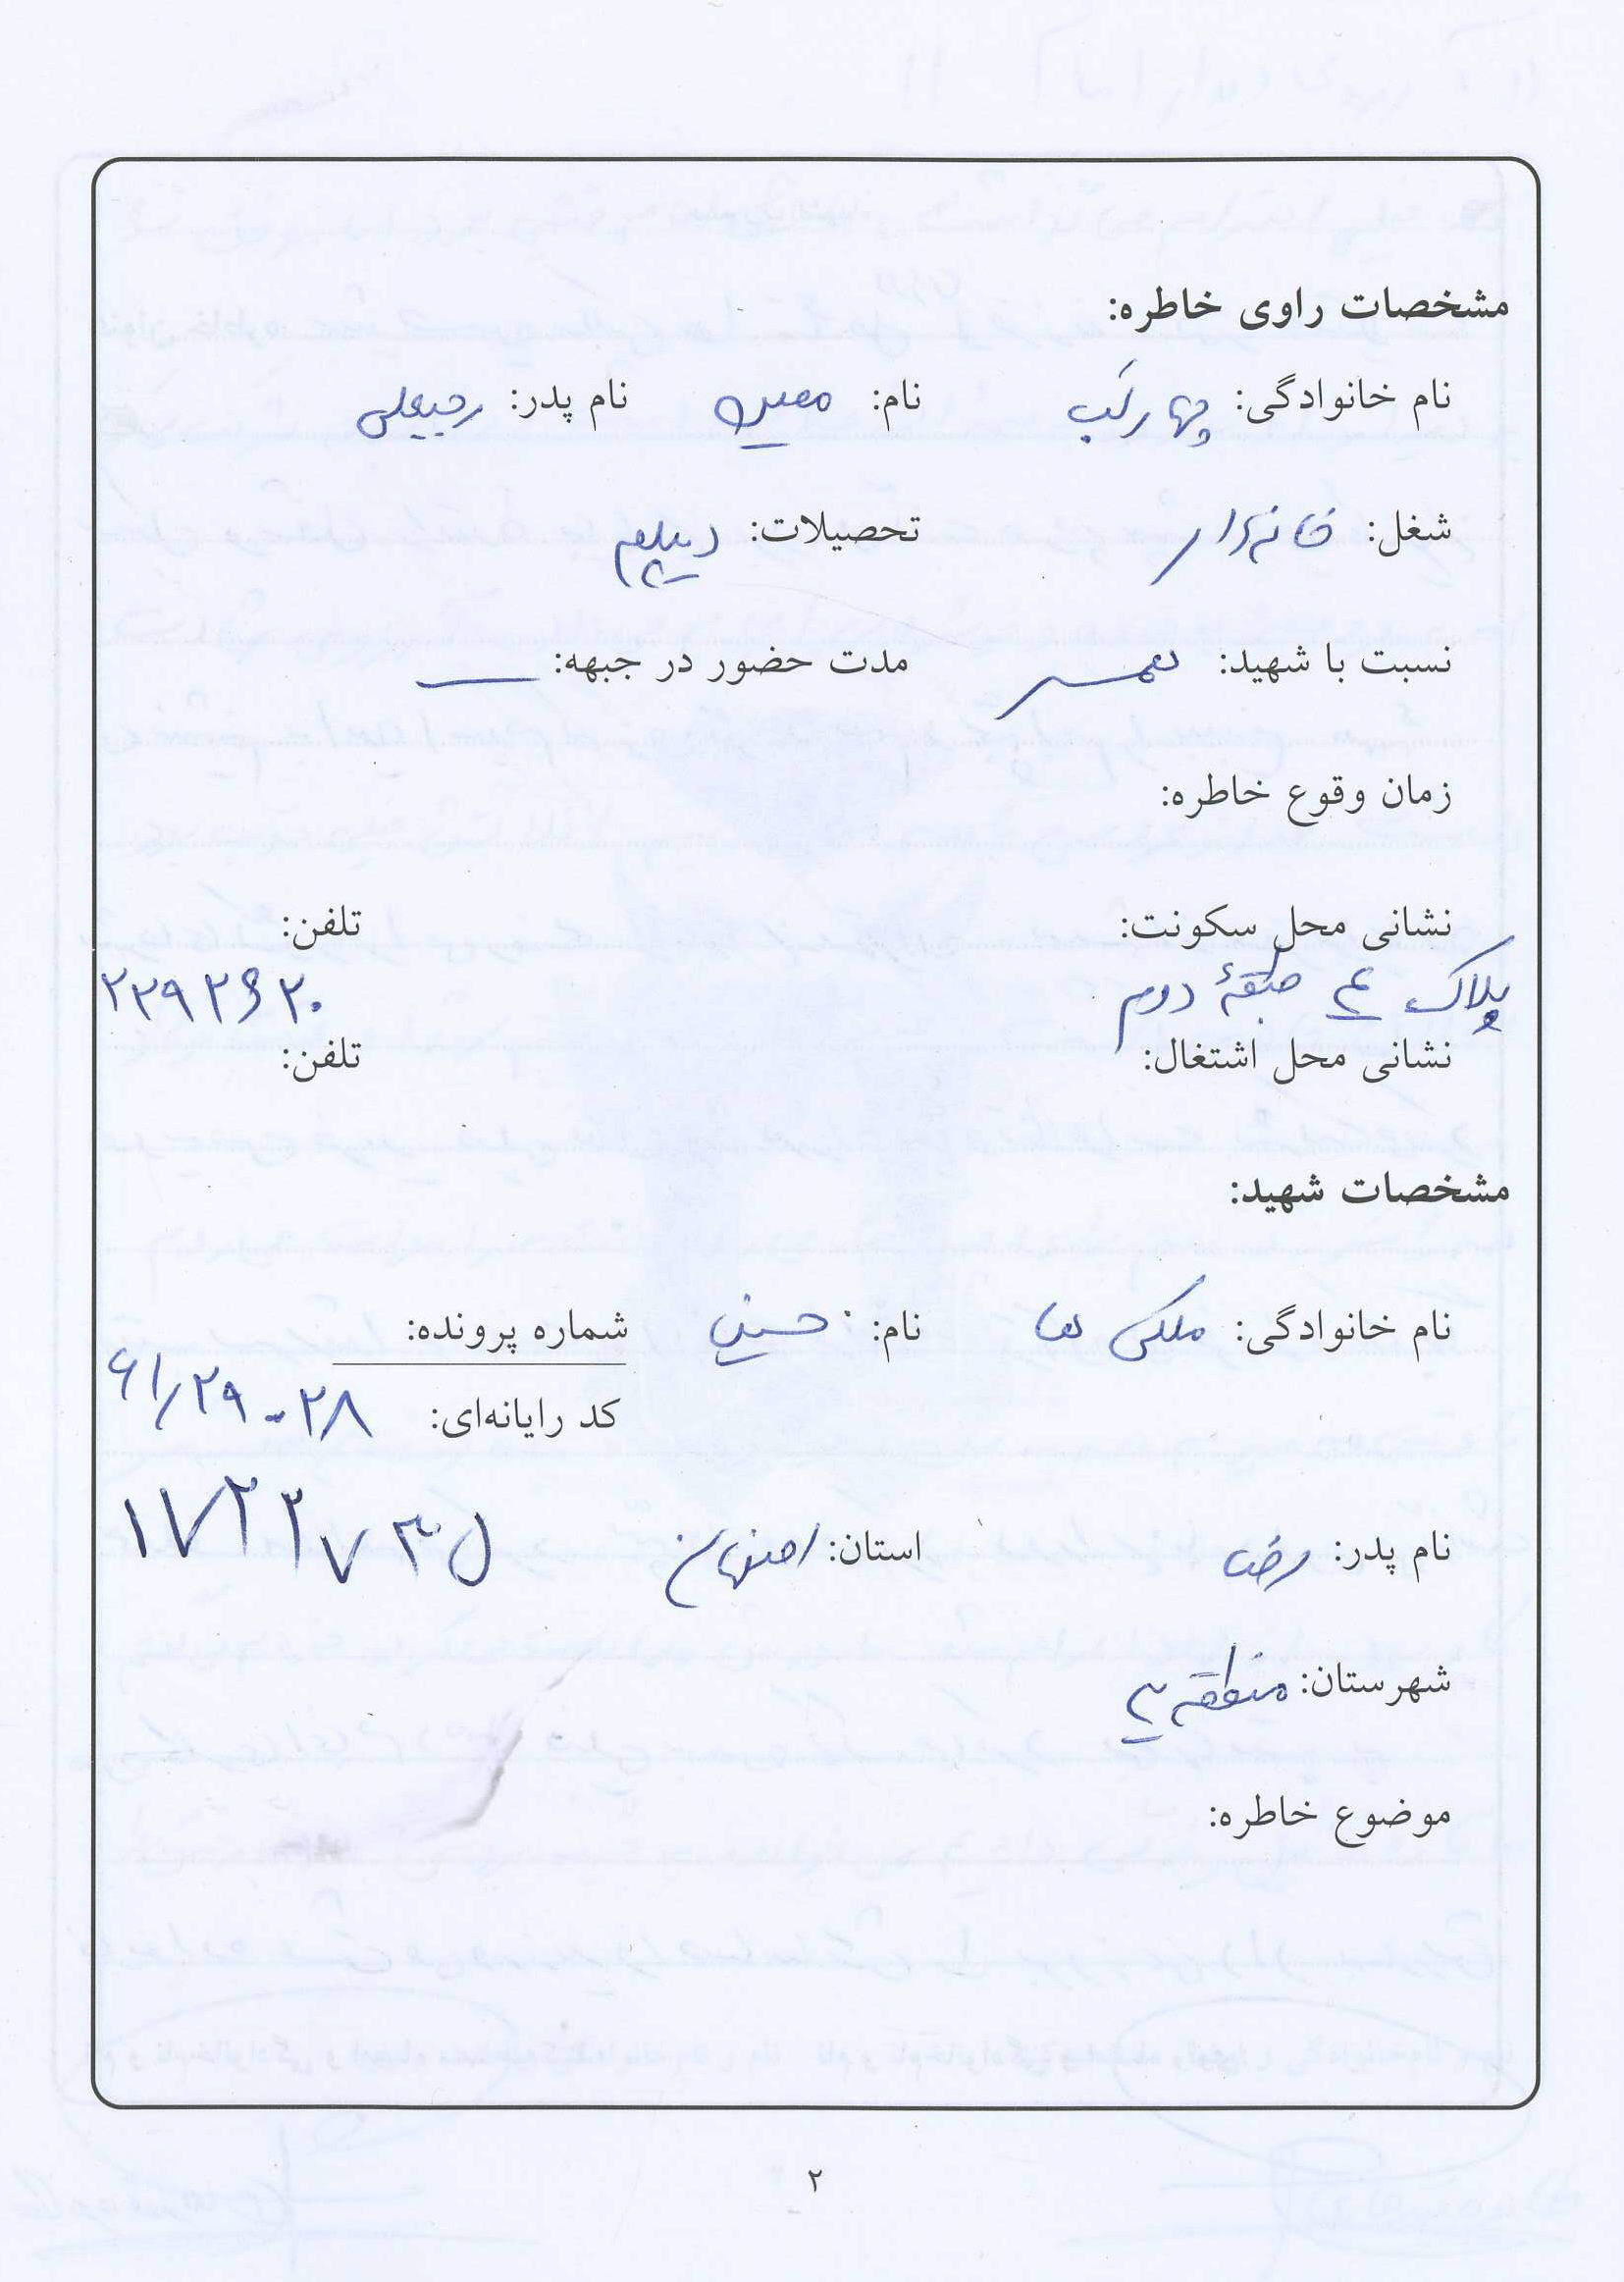 مشخصات راوی خاطره:
نام خانوادگی: چهارلب نام: معین نام پدر: رجبعلی
شغل: خانه‌دار تحصیلات: دیپلم
نسبت با شهید: همسر مدت حضور در جبهه: ـــ
زمان وقوع خاطره:
نشانی محل سکونت: تلفن:
پلاک ۴ طبقهٔ دوم ۲۲۹۲۶۲۰
نشانی محل اشتغال: تلفن:
مشخصات شهید:
نام خانوادگی: ملکی ها نام: حسین شماره پرونده:
کد رایانه‌ای: ۶۱/۲۹-۲۸
نام پدر: رضا استان: اصفهان
شهرستان: منطقه ۳
موضوع خاطره:
۲